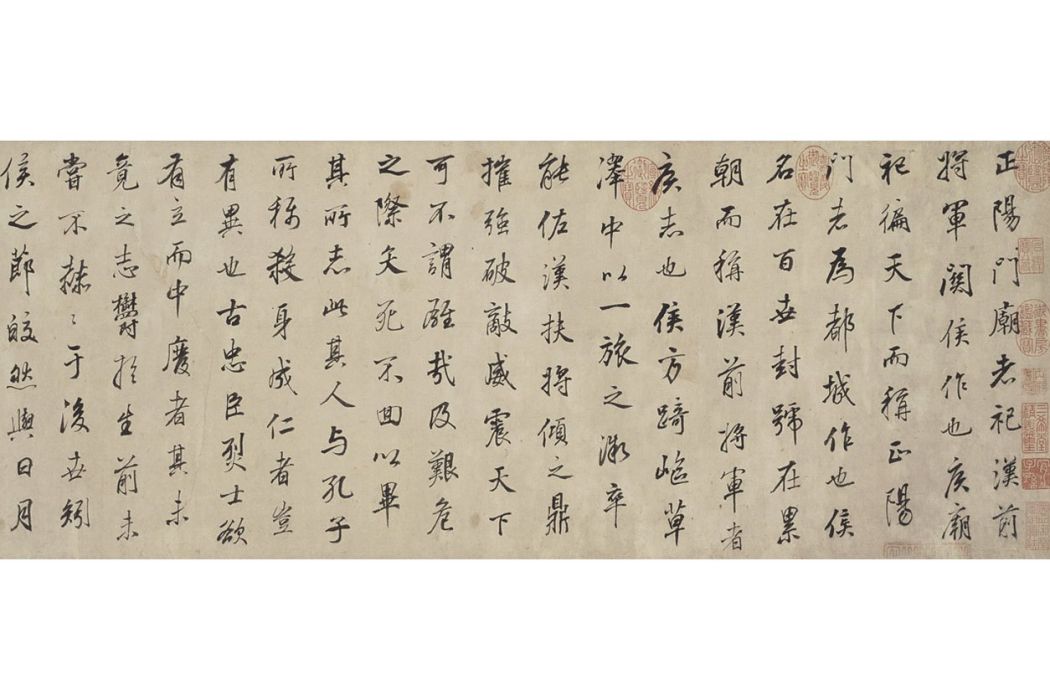 正陽門廟者祀漢前
將軍關侯作也侯廟
祀徧天下而稱正陽
門者為都城作也侯
名在百世封號在累
朝而稱漢前將軍者
侯志也侯方踦嶇草
澤中以一旅之微卒
能佐漢扶將傾之鼎
摧強破敵威震天下
可不謂雄哉及艱危
之際矢死不回以畢
其所志此其人与孔子
所稱殺身成仁者豈
有異也古忠臣烈士欲
有立而中廢者其未
竟之志鬱於生前未
嘗不赫赫于後世矧
侯之節皎然與日月